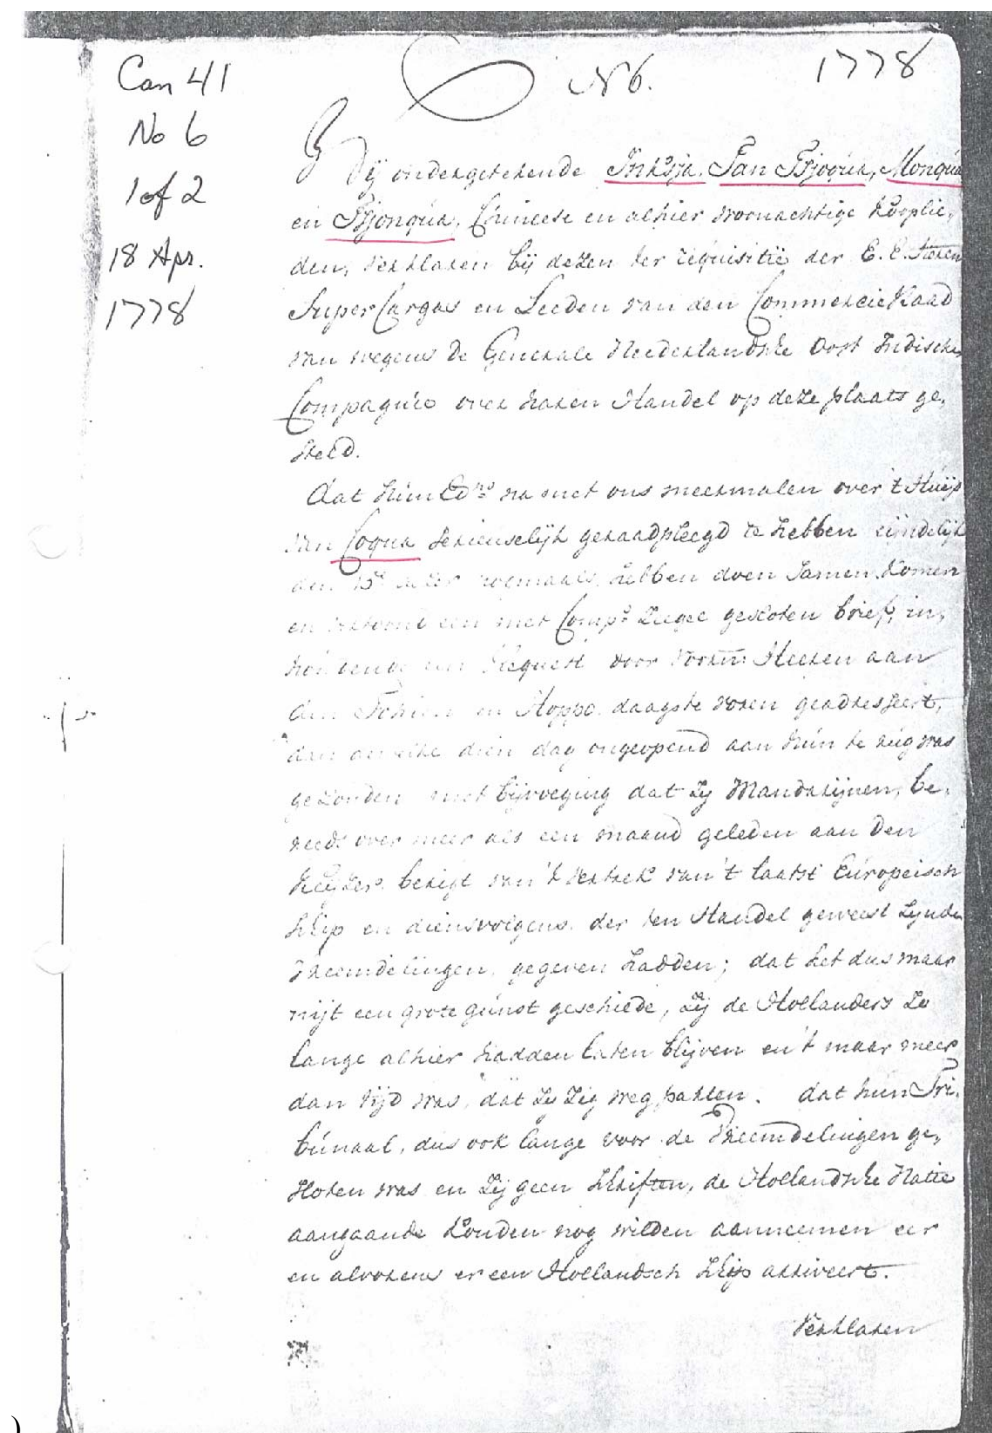 Can 41
No 6
1 of 2
18 Apr.
1778
N 6.
1778
Wij ondergetekende Inksja, Tan Tsjoqua, Monqua
en Tsjonqua, Chineese en alhier woonachtige kooplie,
den, verklaren bij dezen ter requisitie der E. E. Heeren
Super Cargas en Leeden van den Commercie Raad
van wegens de Generale Nederlandsche Oost Indische
Compagnie over haren Handel op deze plaats ge,
steld.
Dat hun Ed.ns na met ons meermalen over 't Huijs
van Coqua serieuselijk geraadpleegd te hebben eijndelijk
den 15.e hebben doen Samen komen
en een met Comp.s Zegel gesloten brief, in,
houdende een Request door Heeren aan
den en Hoppo daags te voren geadresseert,
dan dien dag ongeopend aan hun te rug was
gezonden met bijvoeging dat zij Mandarijnen, be,
reeds over meer als een maand geleden aan den
Keijzer berigt van 't vertrek van 't laatst Europeisch
Schip en dienvolgens der ten Handel geweest zijnde
Vreemdelingen gegeven hadden; dat het dus maar
uijt een grote gunst geschiede, zij de Hollanders zo
lange alhier hadden laten blijven en 't maar meer
dan tijd was, dat zij zig weg pakten. dat hun Tri,
bunaal, dus ook lange voor de Vreemdelingen ge,
sloten was en zij geen schriften, de Hollandsche Natie
aangaande konden nog wilden aanneemen eer
en alvorens er een Hollandsch Schip arriveert.
Verklaren
)